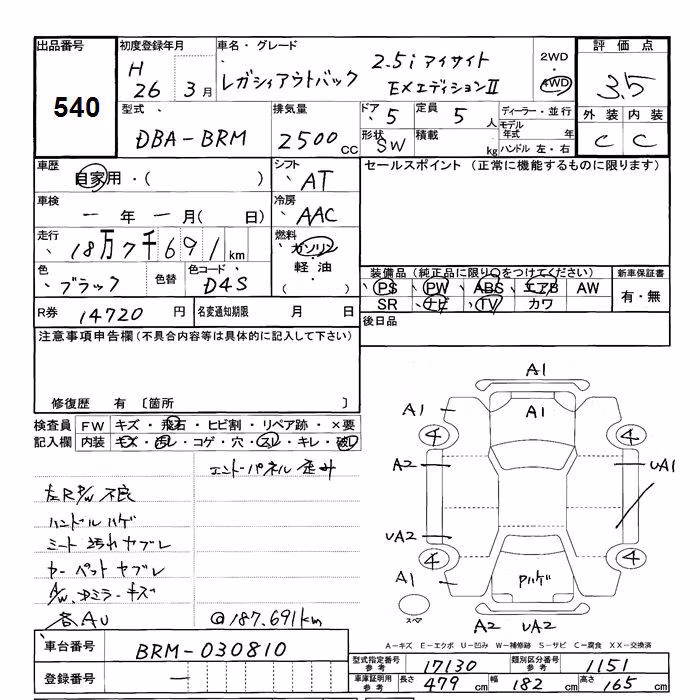 出品番号 540
初度登録年月 H 26年 3月
車名・グレード レガシィアウトバック 2.5i アイサイト EXエディションⅡ
2WD 4WD
評価点 3.5
外装 C 内装 C
型式 DBA-BRM
排気量 2500 CC
ドア 5 定員 5 人
形状 SW 積載 kg
ディーラー・並行
モデル年式 年
ハンドル 左・右
車歴 自家用・( )
シフト AT
セールスポイント (正常に機能するものに限ります)
車検 ー 年 ー 月( 日)
冷房 AAC
走行 18万7千691 km
燃料 ガソリン・軽油・
色 ブラック 色替 色コード D4S
装備品(純正品に限り○をつけてください) 新車保証書
PS PW ABS エアB AW 有・無
SR ナビ TV カワ
R券 14720 円 名変通知期限 月 日
後日品
注意事項申告欄(不具合内容等は具体的に記入して下さい)
修復歴 有 〔箇所 〕
検査員 FW キズ・飛石・ヒビ割・リペア跡・×要
記入欄 内装 キズ・汚レ・コゲ・穴・スレ・キレ・破レ
エンドパネル 歪み
左R P/W 不良
ハンドル ハゲ
シート 汚れ ヤブレ
カーペット ヤブレ
A/W、Dミラーキズ
各AU @187.691km
A1
A1 A1
4 4
A2 UA1
UA2
4 4
A1 Pハゲ
スペア
A2 UA2
A-キズ E-エクボ U-凹み W-補修跡 S-サビ C-腐食 XX-交換済
車台番号 BRM-030810
登録番号 ー
型式指定番号 参考 17130 類別区分番号 参考 1151
車庫証明用 参考 長さ 479 cm 幅 182 cm 高さ 165 cm